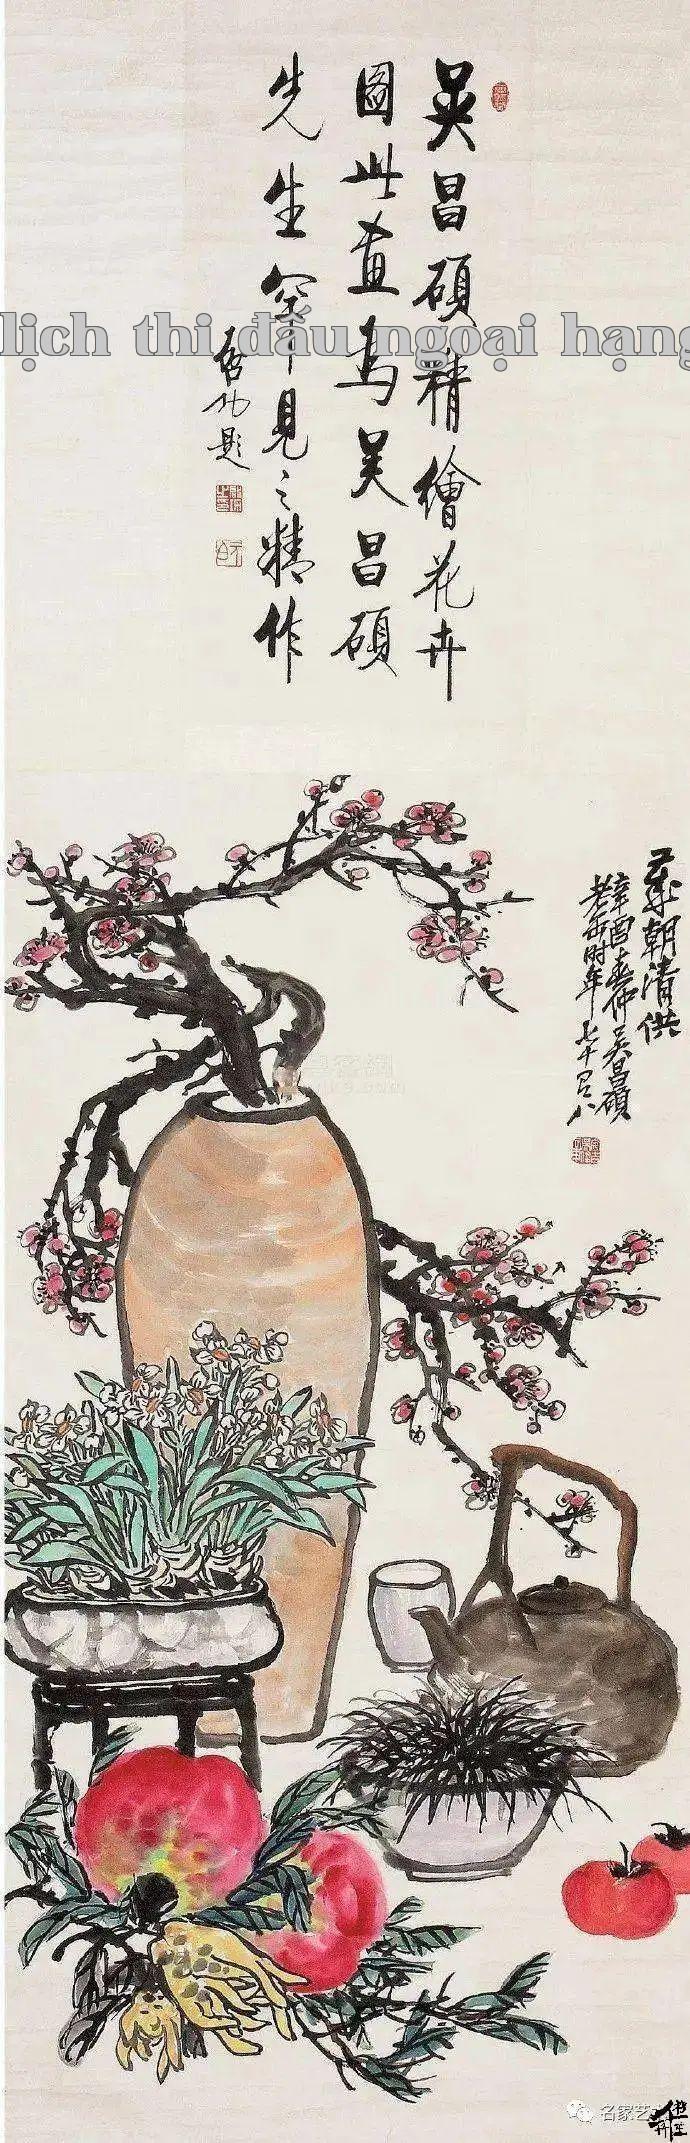 吴昌碩精繪花卉
圖此畫爲吴昌碩
先生罕見之精作
啓功題
lịch thi đấu ngoại hạng
歲朝清供
辛酉春仲吴昌碩
老缶時年七十有八
名家艺